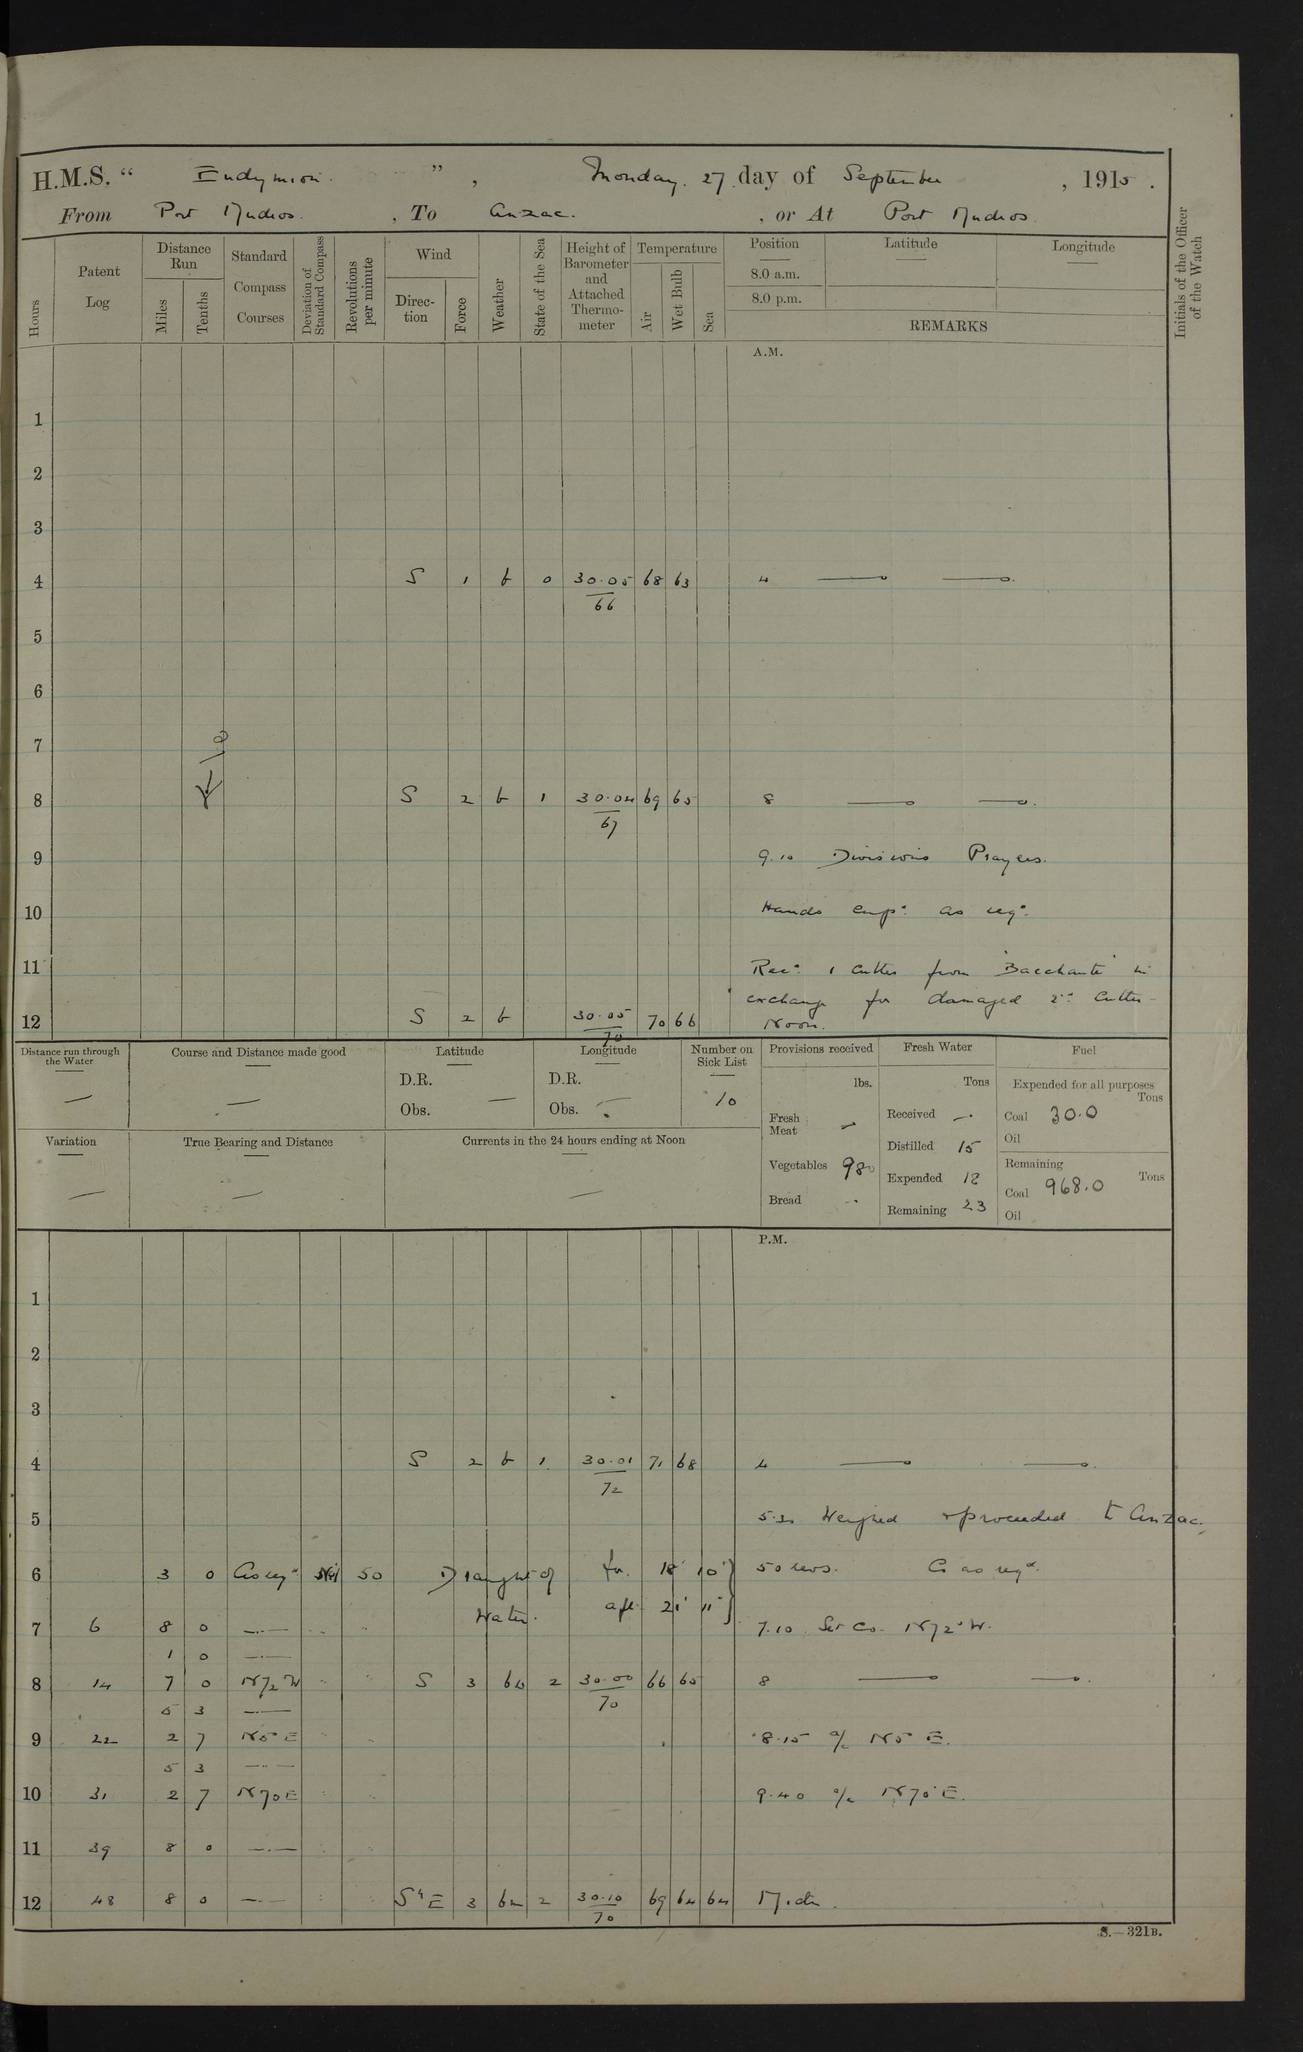 H.M.S. “ Endymion ” , Monday 27 day of September , 1915 .
From Port Mudros , To Anzac. , or At Port Mudros
Hours
Patent Log
Distance Run
Miles
Tenths
Standard Compass Courses
Deviation of Standard Compass
Revolutions per minute
Wind
Direction
Force
Weather
State of the Sea
Height of Barometer and Attached Thermometer
Temperature
Air
Wet Bulb
Sea
Position Latitude Longitude
8.0 a.m.
8.0 p.m.
REMARKS
Initials of the Officer of the Watch
A.M.
1
2
3
4 S 1 b 0 30.05 68 63 4
66
5
6
7
8 S 2 b 1 30.04 69 65 8
67
9 9.10 Divisions Prayers.
10 Hands emp: as reqd.
11 Recd 1 Cutter from 'Bacchante' in
exchange for damaged 2nd Cutter
12 S 2 b 30.05 70 66 Noon.
70
Distance run through the Water
Course and Distance made good
Latitude
D.R.
Obs.
Longitude
D.R.
Obs.
Number on Sick List
10
Variation
True Bearing and Distance
Currents in the 24 hours ending at Noon
Provisions received
lbs.
Fresh Meat
Vegetables 980
Bread
Fresh Water
Tons
Received
Distilled 15
Expended 12
Remaining 23
Fuel
Expended for all purposes
Tons
Coal 30.0
Oil
Remaining
Coal 968.0 Tons
Oil
P.M.
1
2
3
4 S 2 b 1 30.01 71 68 4
72
5 Weighed & proceeded to Anzac.
6 3 0 Co as reqd 50 Draught of for. 18' 10" 50 revs. Co as reqd.
Water. aft. 21' 11"
7 6 8 0 7.10 Set Co. N72°W.
1 0
8 14 7 0 N72W S 3 2 30.00 66 65 8
70
5 3
9 22 2 7 N5E 8.15 a/c N5°E.
5 3
10 31 2 7 N70E 9.40 a/c N70°E.
11 39 8 0
12 48 8 0 SʸE 3 2 30.10 69 64 64 Midt.
70
S.—321B.